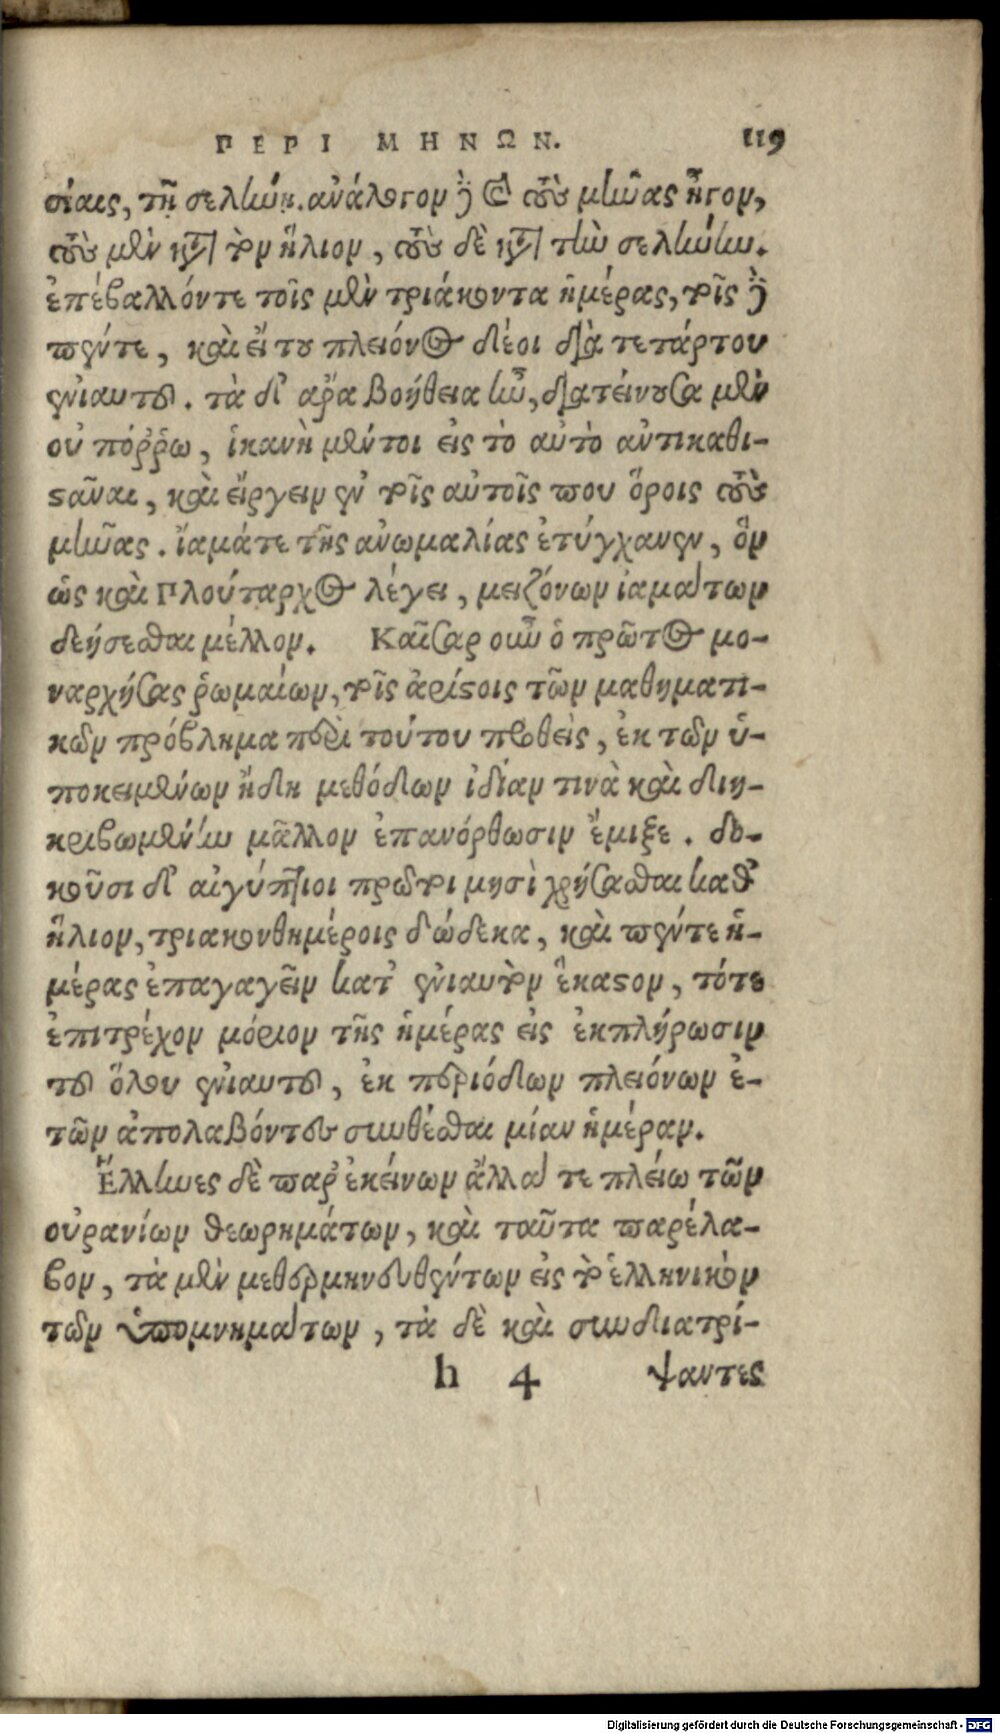 ΠΕΡΙ ΜΗΝΩΝ. 119
σίαις, τῇ σελήνῃ. ἀνάλογον δὲ καὶ τοὺς μῆνας ἦγον,
τοὺς μὲν κατὰ τὸν ἥλιον, τοὺς δὲ κατὰ τὴν σελήνην.
ἐπέβαλλόντε τοῖς μὲν τριάκοντα ἡμέρας, τοῖς δὲ
πέντε, καὶ εἴ του πλείονος δέοι διὰ τετάρτου
ἐνιαυτοῦ. τὰ δ' ἄρα βοήθεια ἦν, διατείνουσα μὲν
οὐ πόῤῥω, ἱκανὴ μέντοι εἰς τὸ αὐτὸ ἀντικαθι-
στᾶναι, καὶ εἴργειν ἐν τοῖς αὐτοῖς που ὅροις τοὺς
μῆνας. ἴαμάτε τῆς ἀνωμαλίας ἐτύγχανεν, ὃν
ὡς καὶ Πλούταρχος λέγει, μειζόνων ἰαμάτων
δεήσεσθαι μέλλον. Καῖσαρ οὖν ὁ πρῶτος μο-
ναρχήσας ῥωμαίων, τοῖς ἀρίστοις τῶν μαθηματι-
κῶν πρόβλημα περὶ τούτου προθεὶς, ἐκ τῶν ὑ-
ποκειμένων ἤδη μεθόδων ἰδίαν τινὰ καὶ διη-
κριβωμένην μᾶλλον ἐπανόρθωσιν ἔμιξε. δο-
κοῦσι δ' αἰγύπτιοι πρῶτοι μησὶ χρήσασθαι καθ'
ἥλιον, τριακονθημέροις δώδεκα, καὶ πέντε ἡ-
μέρας ἐπαγαγεῖν κατ' ἐνιαυτὸν ἕκαστον, τότε
ἐπιτρέχον μόριον τῆς ἡμέρας εἰς ἐκπλήρωσιν
τοῦ ὅλου ἐνιαυτοῦ, ἐκ περιόδων πλειόνων ἐ-
τῶν ἀπολαβόντες συνθέσθαι μίαν ἡμέραν.
Ἕλληνες δὲ παρ' ἐκείνων ἄλλα τε πλείω τῶν
οὐρανίων θεωρημάτων, καὶ ταῦτα παρέλα-
βον, τὰ μὲν μεθερμηνευθέντων εἰς τὸ ἑλληνικὸν
τῶν ὑπομνημάτων, τὰ δὲ καὶ συνδιατρί-
h 4 ψαντες
Digitalisierung gefördert durch die Deutsche Forschungsgemeinschaft - DFG